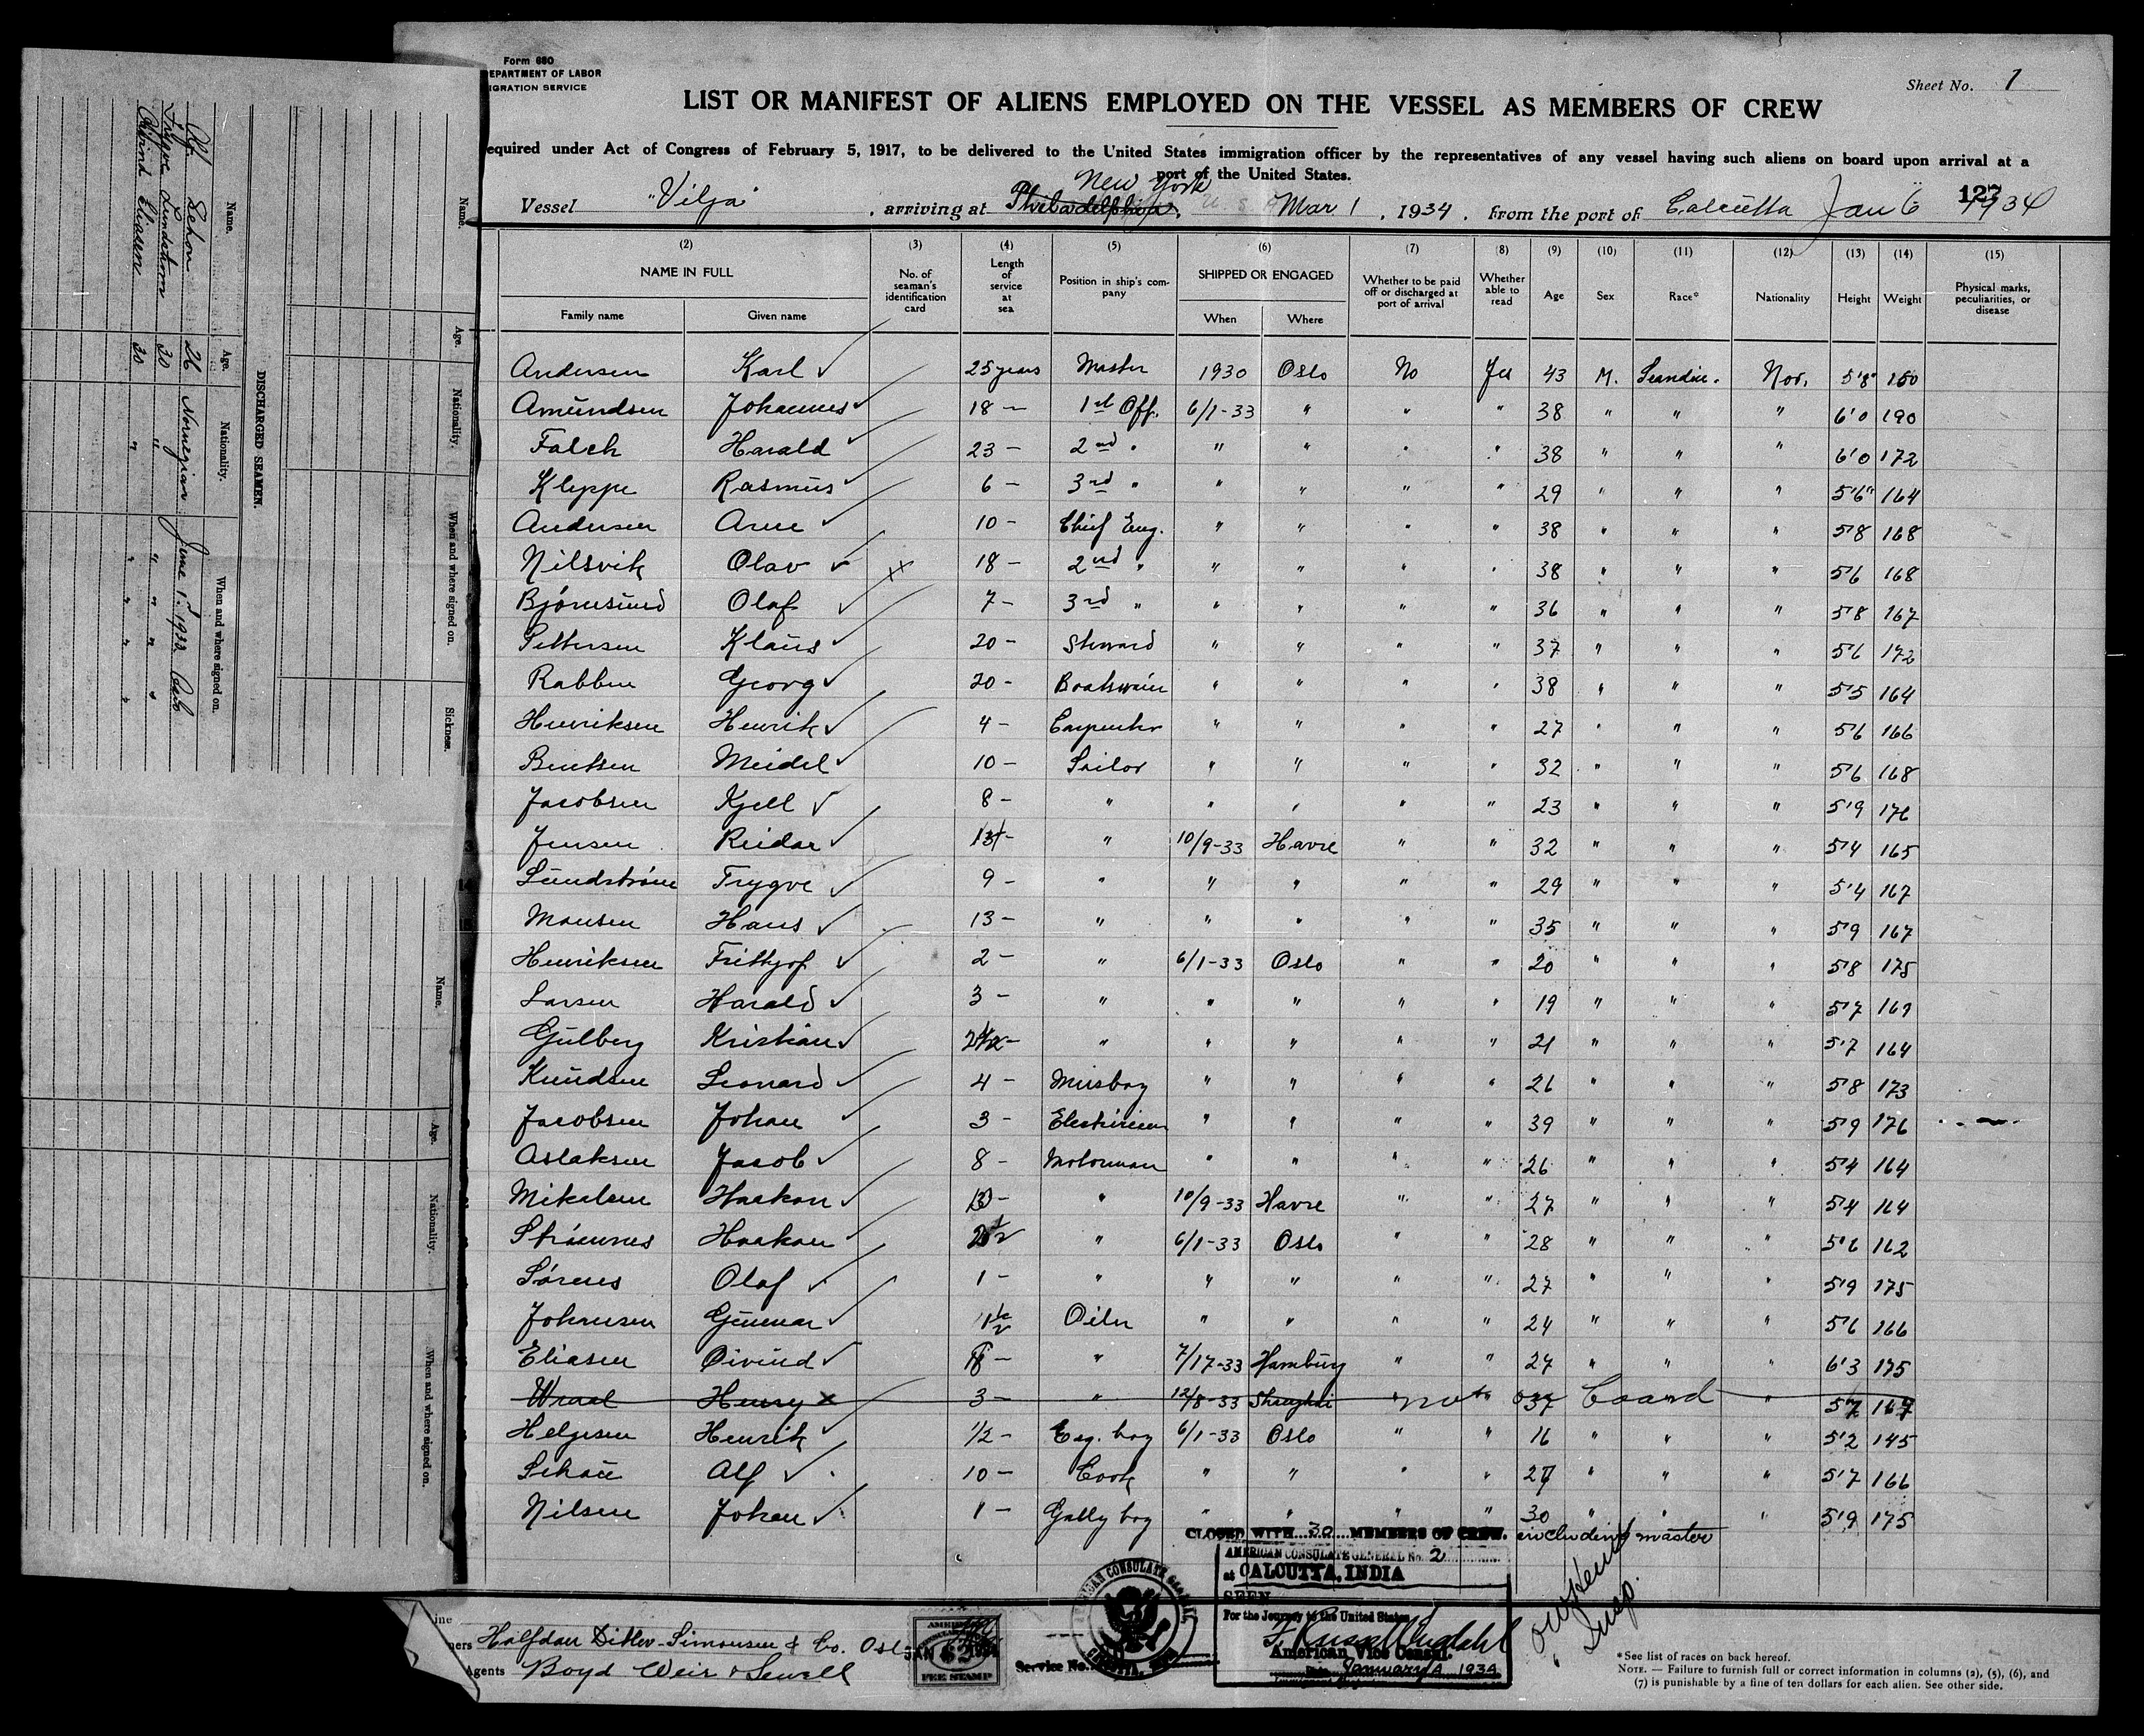 Form 680
DEPARTMENT OF LABOR
IGRATION SERVICE
Sheet No. 1
LIST OR MANIFEST OF ALIENS EMPLOYED ON THE VESSEL AS MEMBERS OF CREW
equired under Act of Congress of February 5, 1917, to be delivered to the United States immigration officer by the representatives of any vessel having such aliens on board upon arrival at a
port of the United States.
New York
127
Vessel "Vilja", arriving at Philadelphia, U.S.A. Mar 1, 1934, from the port of Calcutta Jan 6 1934
(2) (3) (4) (5) (6) (7) (8) (9) (10) (11) (12) (13) (14) (15)
NAME IN FULL No. of seaman's identification card Length of service at sea Position in ship's company SHIPPED OR ENGAGED Whether to be paid off or discharged at port of arrival Whether able to read Age Sex Race* Nationality Height Weight Physical marks, peculiarities, or disease
Family name Given name When Where
Andersen Karl ✓ 25 years Master 1930 Oslo No Yes 43 M. Scandin. Nor. 5'8" 150
Amundsen Johannes ✓ 18 — 1st Off. 6/1-33 " " " 38 " " " 6'0 190
Falch Harald ✓ 23 — 2nd " " " " " 38 " " " 6'0 172
Kleppe Rasmus ✓ 6 — 3rd " " " " " 29 " " " 5'6" 164
Andersen Arne ✓ 10 - Chief Eng. " " " " 38 " " " 5'8 168
Nilsvik Olav ✓ xx 18 — 2nd " " " " " 38 " " " 5'6 168
Bjørnsund Olaf ✓ 7 - 3rd " " " " " 36 " " " 5'8 167
Pettersen Klaus ✓ 20 - Steward " " " " 37 " " " 5'6 172
Rabben Georg ✓ 20 - Boatswain " " " " 38 " " " 5'5 164
Henriksen Henrik ✓ 4 - Carpenter " " " " 27 " " " 5'6 166
Bentsen Meidel ✓ 10 - Sailor " " " " 32 " " " 5'6 168
Jacobsen Kjell ✓ 8 - " " " " " 23 " " " 5'9 176
Jensen Reidar ✓ " 10/9-33 Havre " " 32 " " " 5'4 165
Lundstrøm Trygve ✓ 9 - " " " " " 29 " " " 5'4 167
Monsen Hans ✓ 13 — " " " " " 35 " " " 5'9 167
Henriksen Frithjof ✓ 2 — " 6/1-33 Oslo " " 20 " " " 5'8 175
Larsen Harald ✓ 3 — " " " " " 19 " " " 5'7 169
Gulberg Kristian ✓ " " " " " 21 " " " 5'7 164
Knudsen Leonard ✓ 4 - Messboy " " " " 26 " " " 5'8 173
Jacobsen Johan ✓ 3 - Electricien " " " " 39 " " " 5'9 176
Aslaksen Jacob ✓ 8 - Motorman " " " " 26 " " " 5'4 164
Mikalsen Haakon ✓ " 10/9-33 Havre " " 27 " " " 5'4 164
Haakon ✓ " 6/1-33 Oslo " " 28 " " " 5'6 162
Olaf ✓ 1 - " " " " " 27 " " " 5'9 175
Johnsen Gunnar ✓ 1½ Oiler " " " " 24 " " " 5'6 166
Eliasen Øivind ✓ 8 — " 7/17-33 Hamburg " " 27 " " " 6'3 175
Wraal Henry x 3 — " 12/8-33 Shanghai not on board 37 " 5'7 167
Helgesen Henrik ✓ 1/2 - Eng. boy 6/1-33 Oslo " " 16 " " " 5'2 145
Schou Alf ✓ 10 — Cook " " " " 27 " " " 5'7 166
Nilsen Johan ✓ 1 — Gally boy " " " " 30 " " " 5'9 175
CLOSED WITH 30 MEMBERS OF CREW. including master
AMERICAN CONSULATE GENERAL No. 2
at CALCUTTA, INDIA
SEEN
For the Journey to the United States
American Vice Consul.
January 6 1934
Service No.
AMERICAN CONSULATE GENERAL
CALCUTTA, INDIA
FEE STAMP
Insp.
ine
ners Halfdan Ditlev-Simonsen & Co. Oslo
Agents Boyd Weir & Sewell
*See list of races on back hereof.
NOTE. — Failure to furnish full or correct information in columns (2), (5), (6), and
(7) is punishable by a fine of ten dollars for each alien. See other side.
DISCHARGED SEAMEN.
Name. Age. Nationality. When and where signed on.
Alf Schou 26 Norwegian June 1st 1933 Oslo
Trygve Lundstrom 30 " " " "
Øivind Eliasen 30 " " " "
Name. Age. Nationality. When and where signed on. Sickness.
Name. Age. Nationality. When and where signed on.